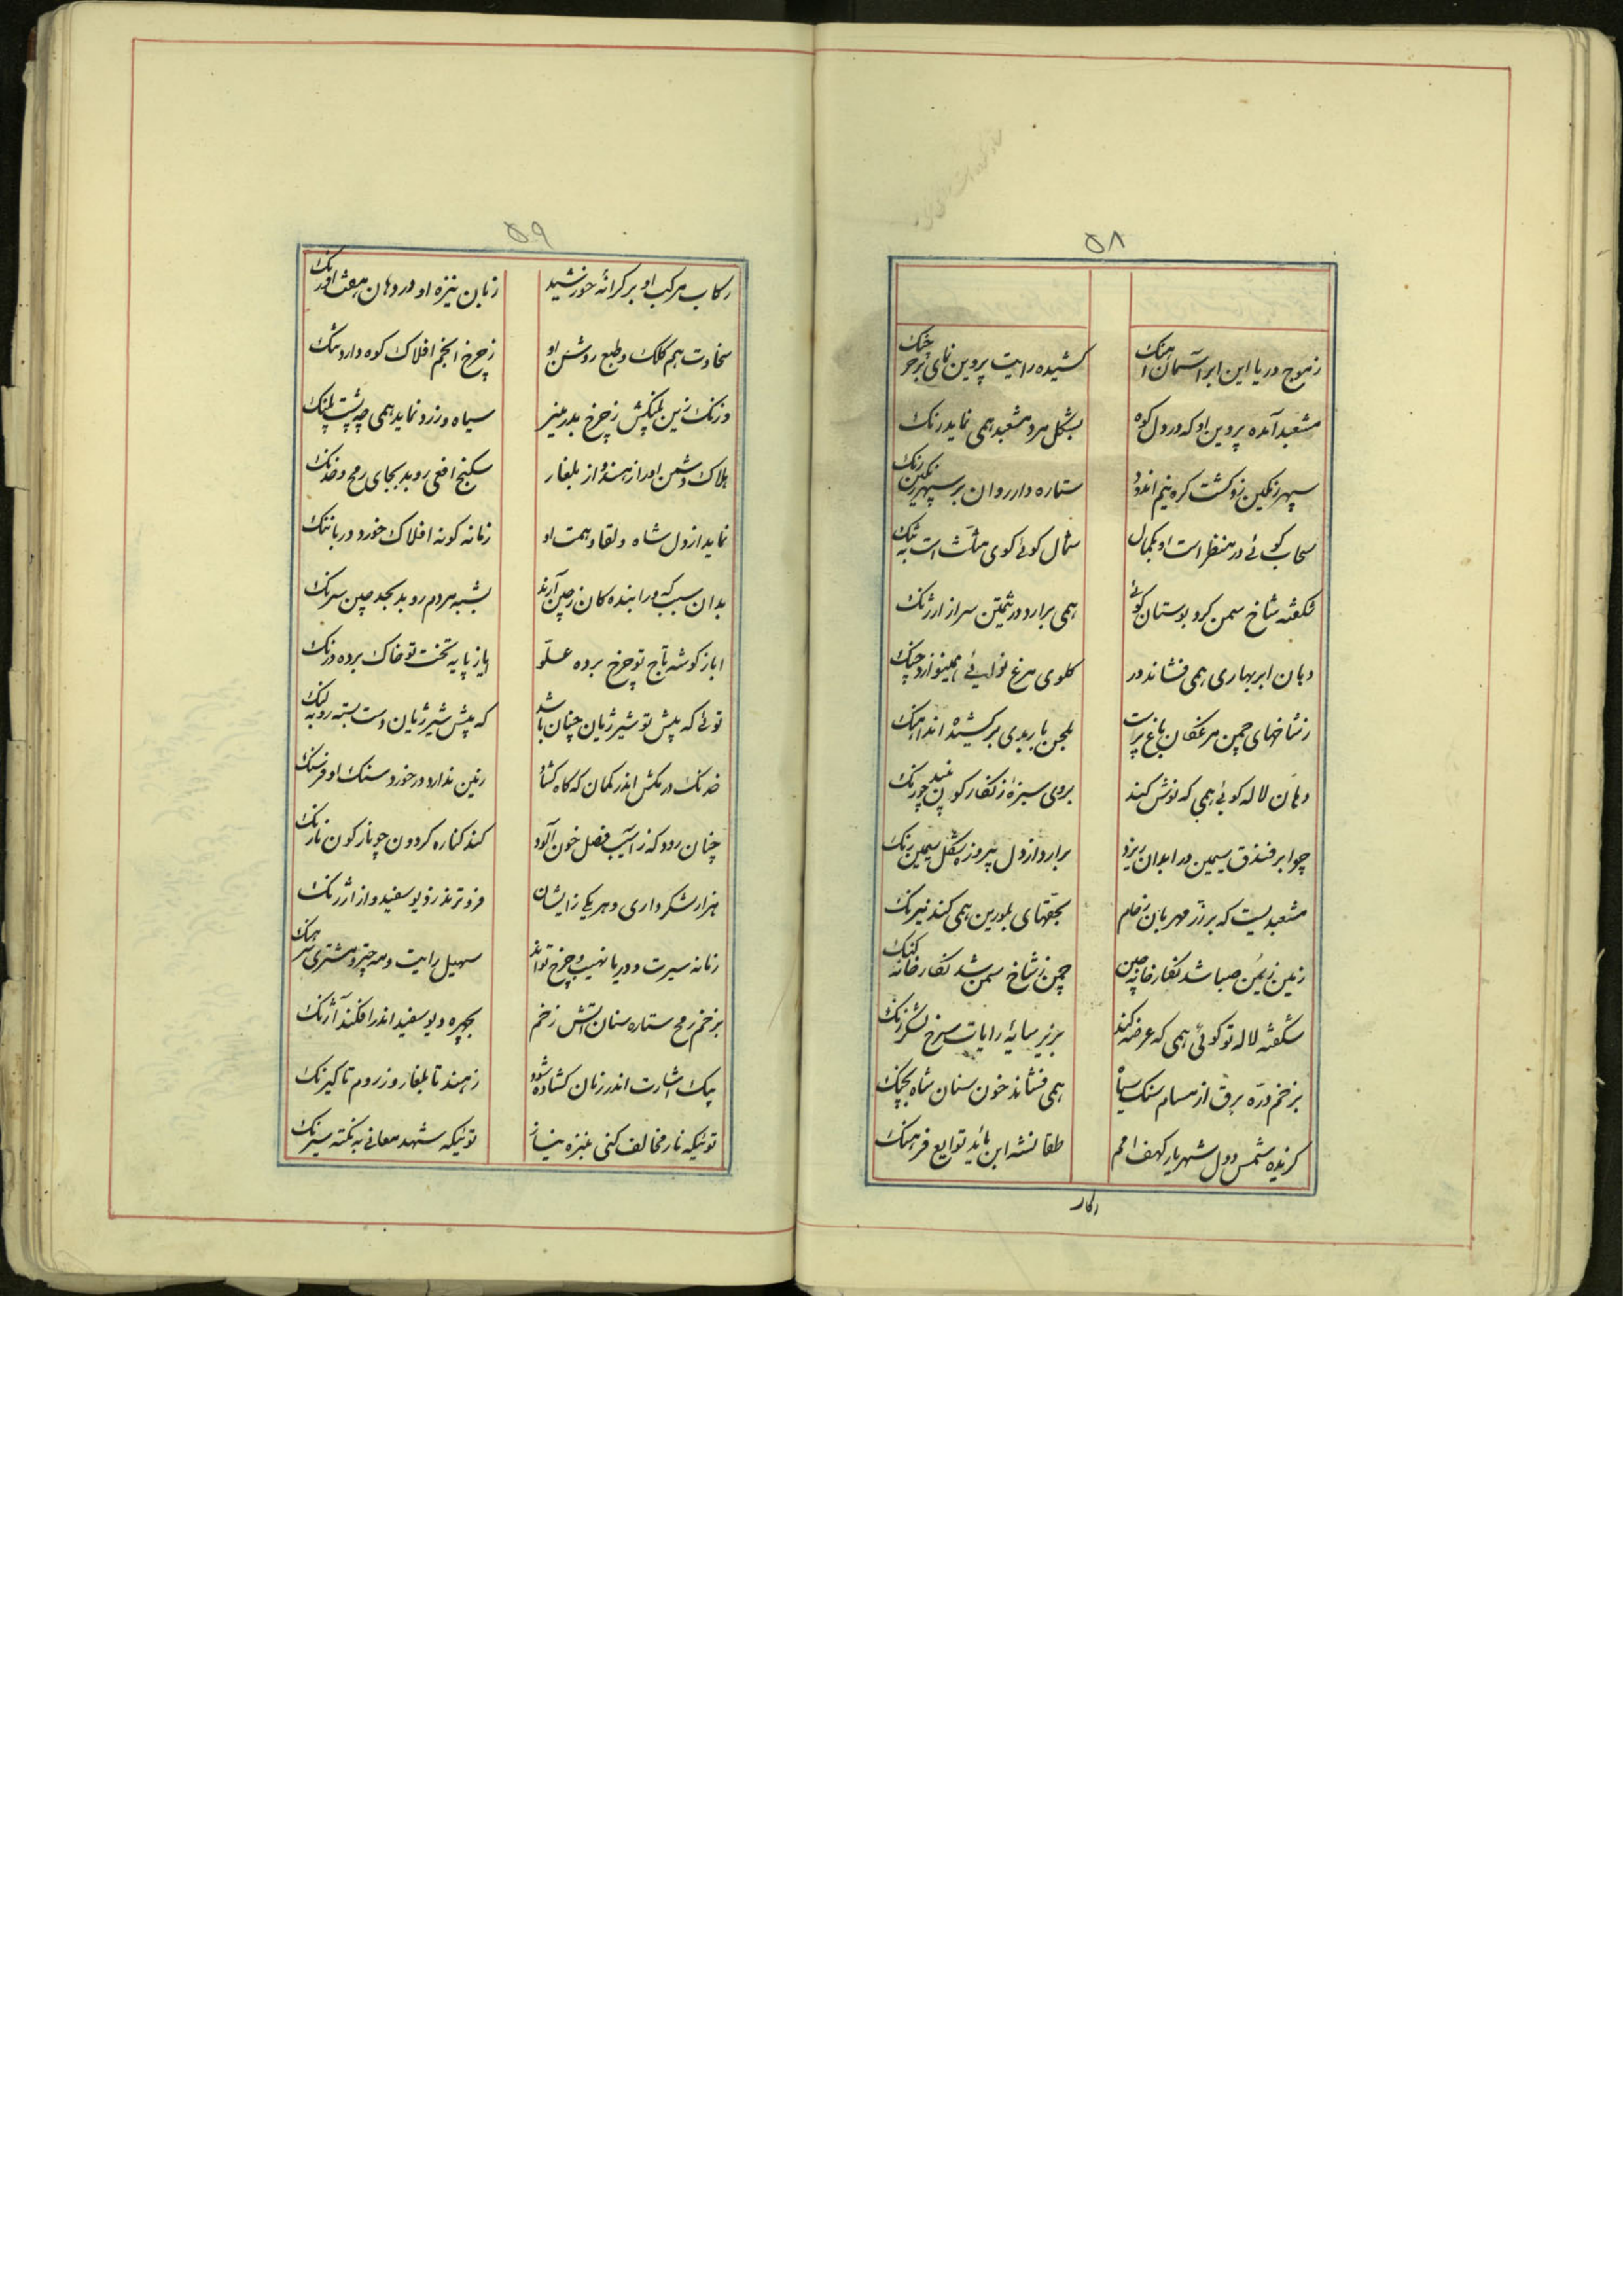 ۵۸
ز موج دریا این ابر آسمان آهنک کشیده رایت پروین نمای بر خرچنک
مشعبد آمده پروین او که در دل کوه بشکل مرد مشعبد همی نماید رنک
سپهر رنکین زو کشت کره نیم اندود ستاره وار روان بر سپهر رنکین رنک
سحاب کوئی در منظر است او بکمال شمال کوئی کوی مثلث است به تنک
شکفته شاخ سمن کرد بوستان کوئی همی برارد در ثمین سر از ارژنک
دهان ابر بهاری همی فشاند در کلوی مرغ نوایی همینوازد چنک
ز شاخهای چمن مرغکان باغ پرست بلحن باربدی بر کشیده اند آهنک
دهان لاله کوئی همی که نوش کند بروی سبزه زنکار کون نبید چو زنک
چو ابر فندق سیمین در ابدان ریزد برارد از دل پیروزه شکل سیمین رنک
مشعبدیست که بر زر مهربان زخام بحقهای بلورین همی کند نیرنک
زمین ز یمن صبا شد نکارخانه چین چمن ز شاخ سمن شد نکارخانه کنک
شکفته لاله تو کوئی همی که عرضه کند بزیر سایه رایات سرخ لشکر زنک
بزخم دره برق از مسام سنک سیاه همی فشاند خون سنان شاه بجنک
کزیده شمس دول شهریار کهف امم طغانشه ابن مؤید توابع فرهنک
رکاب
۵۹
رکاب مرکب او بر کرانه خورشید زبان نیزه او در دهان هفت اورنک
سخاوت هم کلک و طبع روشن او ز چرخ انجم افلاک کوه دارد ننک
و زنک زین پلنکش ز چرخ بدر منیر سیاه و زرد نماید همی چه پشت پلنک
هلاک دشمن او را ز هند و از بلغار سکنج افعی روید بجای رمح و خدنک
نماید از دل شاه و لقا و همت او زمانه کونه افلاک خورد دریا ننک
بدان سبب که ورا بنده کان ز چین آرند بشبه مردم روید بحد چین سرنک
ایا ز کوشه تاج تو چرخ برده علو ایا ز پایه تخت تو خاک برده درنک
توئی که پیش تو شیر ژیان چنان باشد که پیش شیر ژیان دست بسته روبه لنک
خدنک در مکش اندر کمان که کاه کشاد زمین ندارد در خورد سنک او فرسنک
چنان رود که ز آسیب فضل خون آلود کند کناره کردون چو نار کون نارنک
هزار لشکر داری و هر یکی زایشان فزون‌ترند ز دیو سفید و از ارژنک
زمانه سیرت و دریا نهیب و چرخ تواند سهیل رایت و مه چتر و مشتری سرهنک
بزخم رمح ستاره سنان آتش زخم بچهره دیو سفید اندر افکند آژنک
بیک اشارت اندر زمان کشاده شود ز هند تا بلغار و ز روم تا کیرنک
توئیکه نار مخالف کنی بنیزه نیاز توئیکه شهد معانی به نکته سیرنک